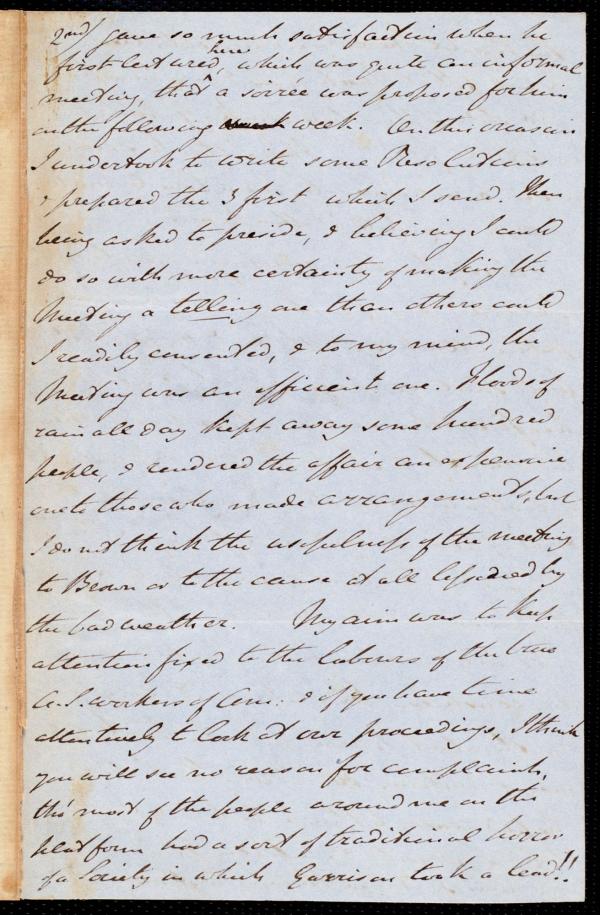 2nd/ gave so much satisfaction when he
first lectured here, which was quite an informal
meeting, that a soirée was proposed for him
on the following week. On this occasion
I undertook to write some Resolutions
& prepared the 3 first which I send. Then
being asked to preside, & believing I could
do so with more certainty of making the
Meeting a telling one than others could
I readily consented, & to my mind, the
Meeting was an efficient one. Floods of
rain all day kept away some hundred
people, & rendered the affair an expensive
one to those who made arrangements, but
I do not think the usefulness of the meeting
to Brown or to the cause at all lessened by
the bad weather. My aim was to keep
attention fixed to the labours of the true
A.S. workers of Am: & if you have time
attentively to look at our proceedings, I think
you will see no reason for complaint,
tho' most of the people around me on the
platform had a sort of traditional horror
of a Society in which Garrison took a lead!!